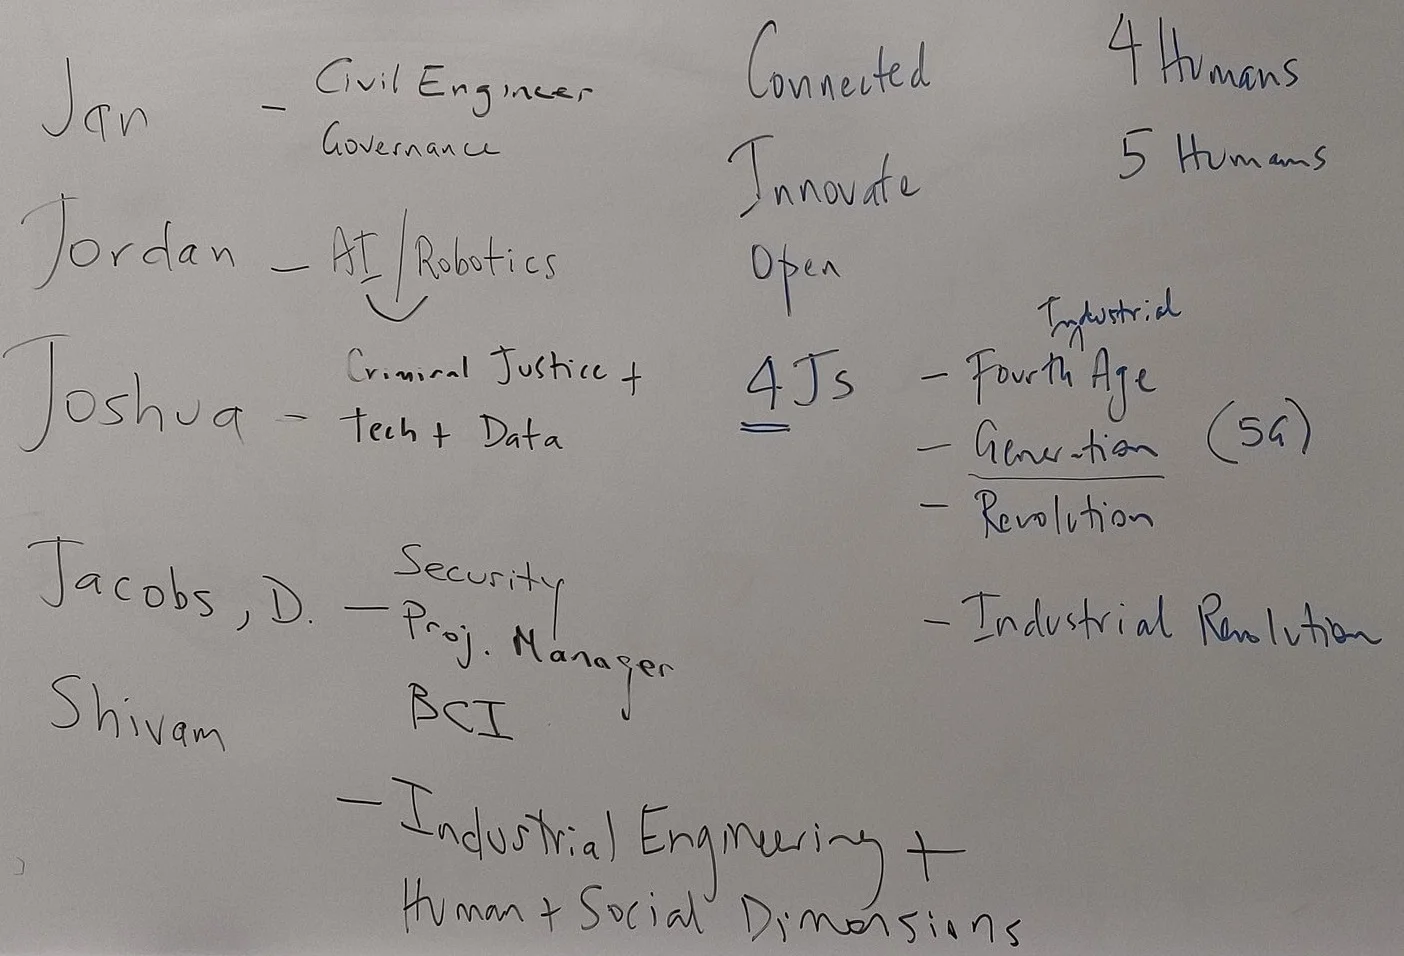 Jan - Civil Engineer
Governance
Jordan - AI/Robotics
Joshua - Criminal Justice +
Tech + Data
Jacobs, D. - Security
Proj. Manager
BCI
Shivam
- Industrial Engineering +
Human + Social Dimensions
Connected
Innovate
Open
4 Humans
5 Humans
4 Js
Industrial
- Fourth Age
- Generation (5G)
- Revolution
- Industrial Revolution